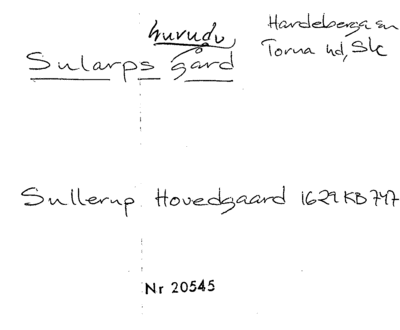 huvudu
Sularps gård
Hardeberga sn
Torna hd, Sk
Sullerup Hovedgaard 1629 KB 747
Nr 20545